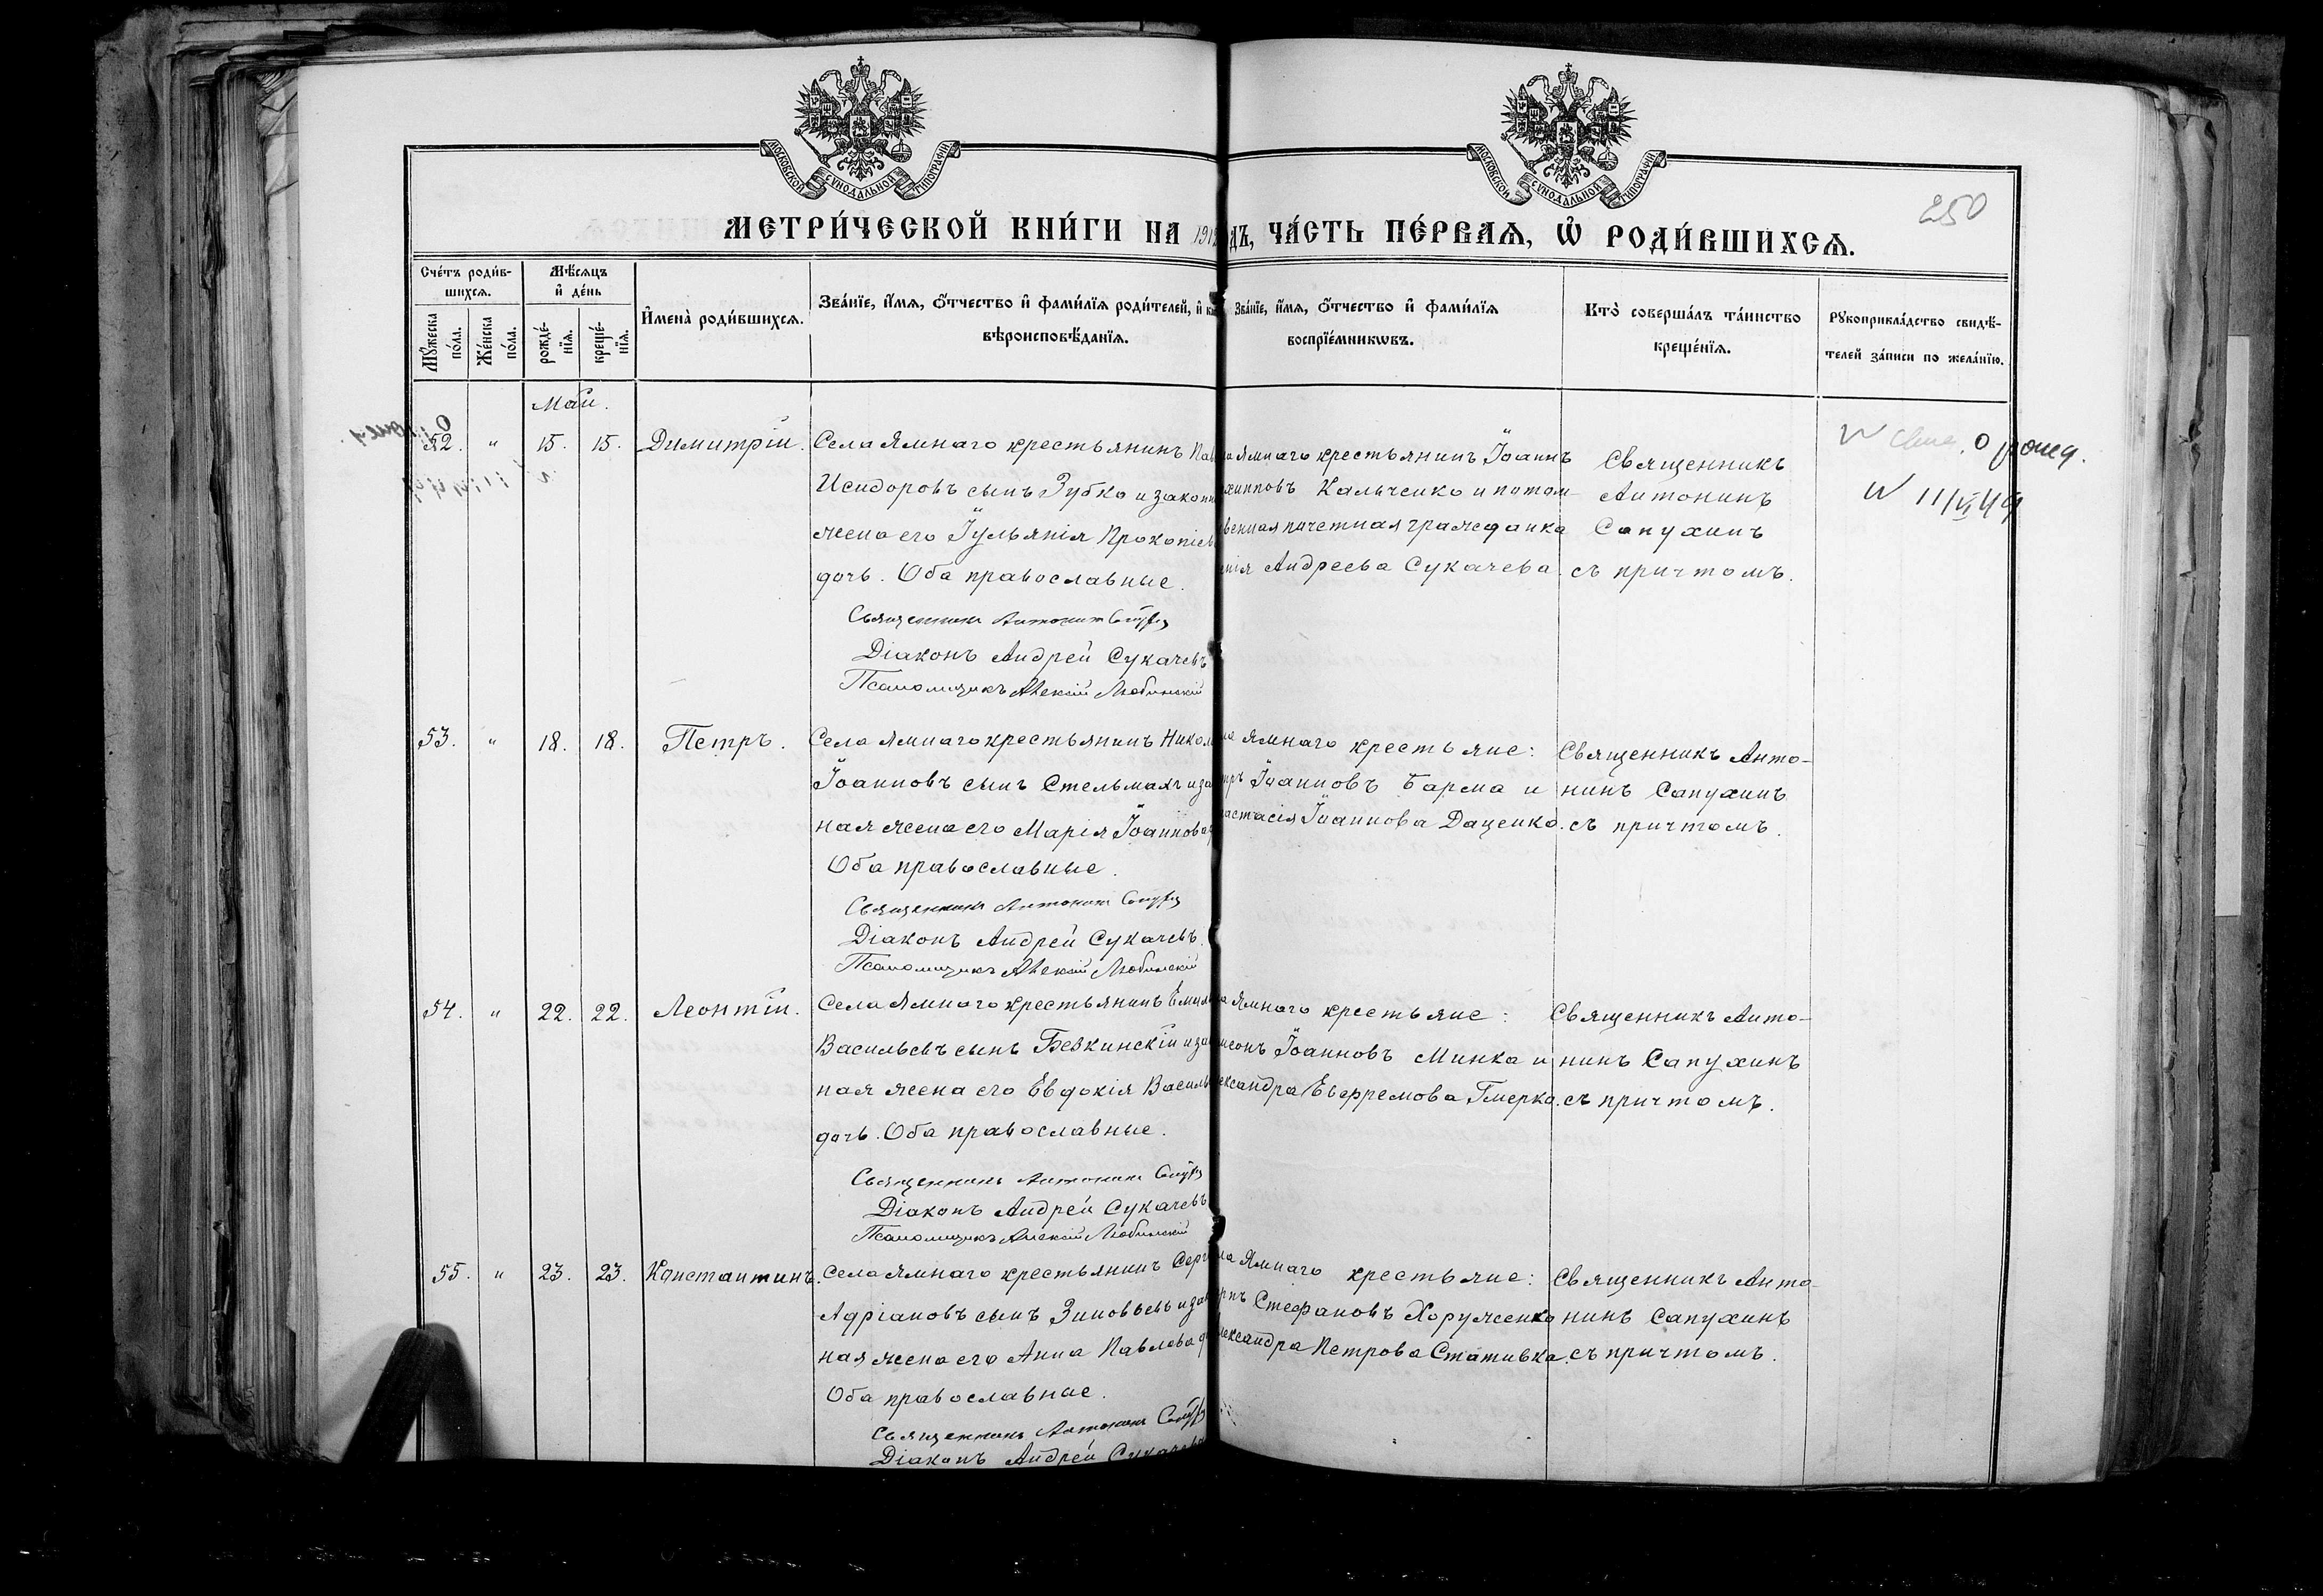 МОСКОВСКОЙ СУНОДАЛЬНОЙ ТИПОГРАФІИ
МОСКОВСКОЙ СУНОДАЛЬНОЙ ТИПОГРАФІИ
250
МЕТРИ́ЧЕСКОЙ КНИ́ГИ НА 191 ДЪ, ЧА́СТЬ ПЕ́РВАѦ, Ѡ҆ РОДИ́ВШИХСѦ.
Сче́тъ роди́в-
шихсѧ.
Мꙋ́жеска по́ла.
Же́нска по́ла.
Мѣ́сѧцъ
и҆ де́нь
рожде́-
нїѧ.
креще́-
нїѧ.
И҆мена̀ роди́вшихсѧ.
Зва́нїе, и҆́мѧ, ѻ҆́тчество и҆ фами́лїѧ роди́телей, и҆
вѣроисповѣ́данїѧ.
Зва́нїе, и҆́мѧ, ѻ҆́тчество и҆ фами́лїѧ
воспрїе́мникѡвъ.
Кто̀ соверша́лъ та́инство
креще́нїѧ.
Рꙋкоприкла́дство свидѣ́-
телей за́писи по жела́нїю.
Май.
52. " 15. 15. Димитрій.
Села Ямнаго крестьянинъ Пав
Исидоровъ сынъ Зубко и законн
жена его Іульянія Прокопіев
дочь. Оба православные.
Священникъ Антонинъ Сапухин
Діаконъ Андрей Сукачевъ
Псаломщикъ Алексій Любинскій
ла Ямнаго крестьянинъ Іоаннъ
хипповъ Кальченко и потом-
венная почетная гражданка
нія Андреева Сукачева.
Священникъ
Антонинъ
Сапухинъ
съ причтомъ.
о рожд.
11/VI 49
53. " 18. 18. Петръ.
Села Ямнаго крестьянинъ Никол
Іоанновъ сынъ Стельмахъ и за
ная жена его Марія Іоаннова
Оба православные.
Священникъ Антонинъ Сапухин
Діаконъ Андрей Сукачевъ.
Псаломщикъ Алексій Любинскій
ла Ямнаго крестьяне:
тръ Іоанновъ Барма и
астасія Іоаннова Даценко.
Священникъ Анто-
нинъ Сапухинъ
съ причтомъ.
54. " 22. 22. Леонтій.
Села Ямнаго крестьянинъ Емил
Васильевъ сынъ Безкинскій и за
ная жена его Евдокія Василь
дочь. Оба православные.
Священникъ Антонинъ Сапухин
Діаконъ Андрей Сукачевъ
Псаломщикъ Алексій Любинскій
ла Ямнаго крестьяне:
мсонъ Іоанновъ Минка и
ександра Евфремова Гмерко.
Священникъ Анто-
нинъ Сапухинъ
съ причтомъ.
55. " 23. 23. Константинъ.
Села Ямнаго крестьянинъ Серг
Адріановъ сынъ Зиновьевъ и зак
ная жена его Анна Павлова д
Оба православные.
Священникъ Антонинъ Сапухин
Діаконъ Андрей Сукачевъ
ла Ямнаго крестьяне:
рпъ Стефановъ Хоруженко
лександра Петрова Стативка.
Священникъ Анто-
нинъ Сапухинъ
съ причтомъ.